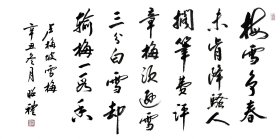 梅雪争春
未肯降骚人
搁笔费评
章梅须逊雪
三分白雪却
输梅一段香
卢梅坡雪梅
辛丑冬月